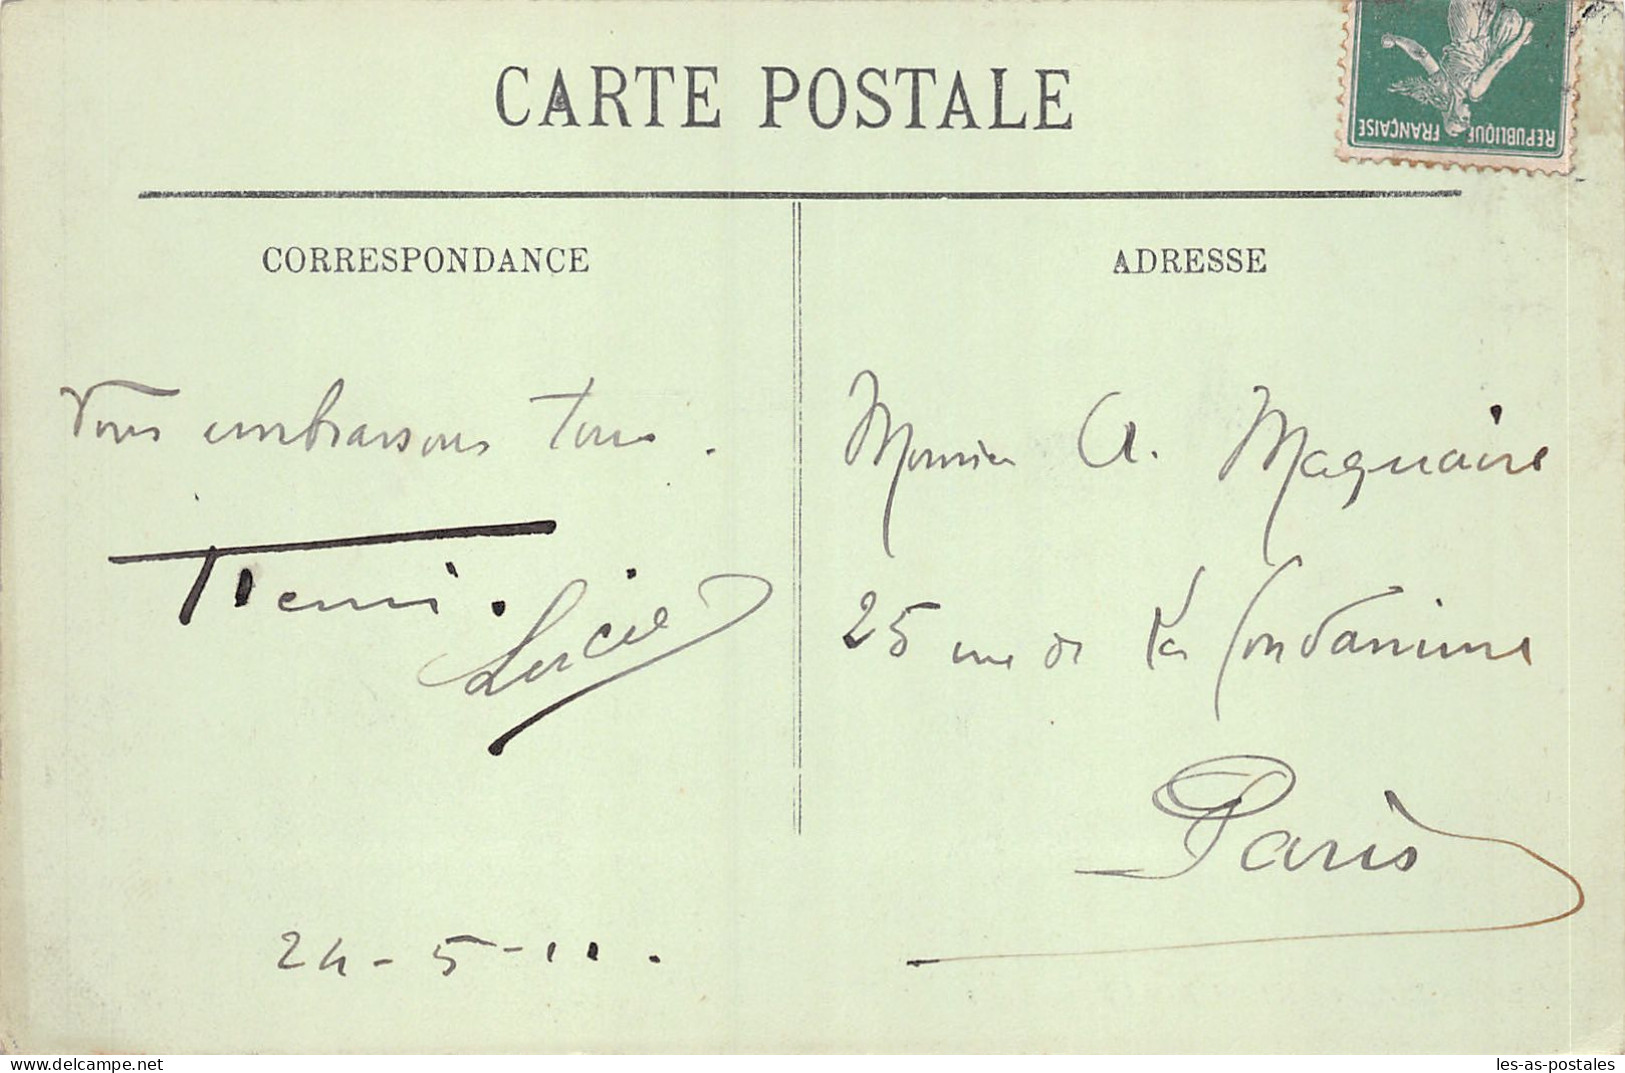 CARTE POSTALE
REPUBLIQUE FRANÇAISE
CORRESPONDANCE
Vous embrassons tous.
Lucie
24-5-11.
ADRESSE
Monsieur A. Magnaire
25 rue de La Condamine
Paris
les-as-postales